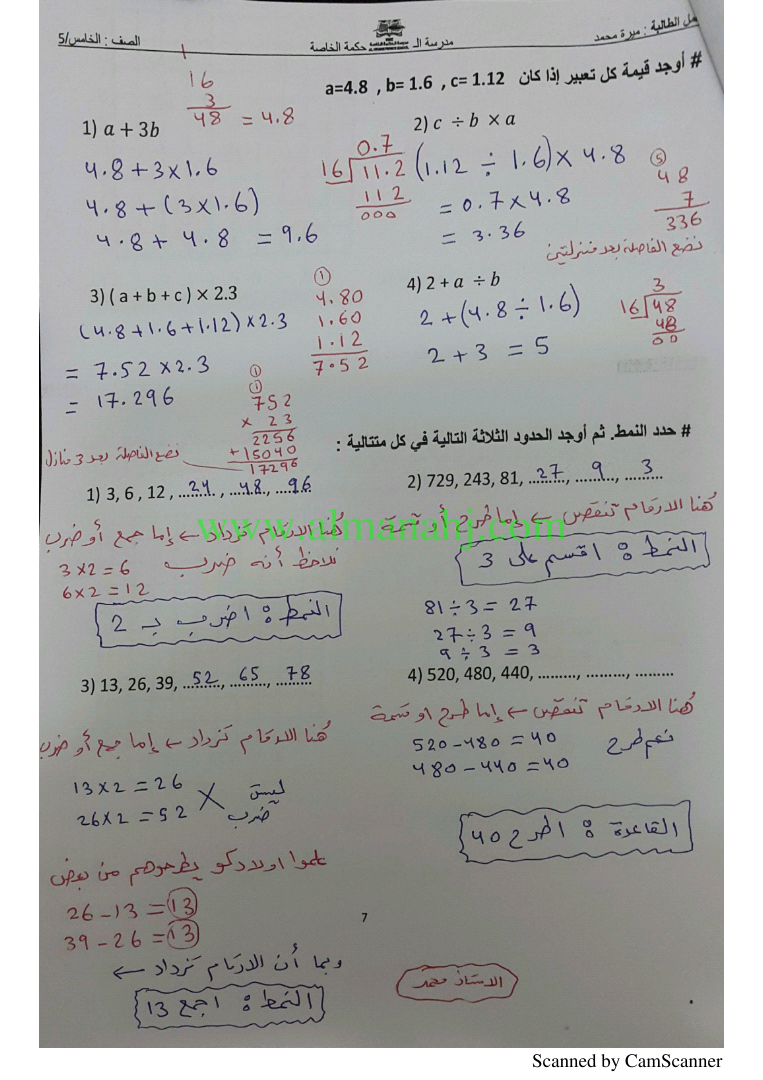 عمل الطالبة : ميرة محمد
مدرسة الـ حكمة الخاصة
الصف : الخامس/5
# أوجد قيمة كل تعبير إذا كان a=4.8 , b= 1.6 , c= 1.12
1) a + 3b
16
3
48 = 4.8
4.8+3×1.6
4.8+(3×1.6)
4.8+4.8 = 9.6
2) c ÷ b × a
0.7
16 11.2
112
000
(1.12 ÷ 1.6)× 4.8
= 0.7×4.8
= 3.36
5
48
7
336
نضع الفاصلة بعد منزلتين
3) ( a + b + c ) × 2.3
(4.8+1.6+1.12)×2.3
= 7.52×2.3
= 17.296
1
4.80
1.60
1.12
7.52
1
1
752
× 23
2256
+15040
17296
نضع الفاصلة بعد 3 منازل
4) 2 + a ÷ b
2+(4.8÷1.6)
2+3 = 5
3
16 48
48
00
# حدد النمط. ثم أوجد الحدود الثلاثة التالية في كل متتالية :
1) 3, 6 , 12 , 24, 48, 96
هنا الارقام تزداد ← إما جمع أو ضرب
نلاحظ أنه ضرب
3×2=6
6×2=12
النمط : اضرب بـ 2
2) 729, 243, 81, 27, 9, 3
هنا الارقام تنقص ← إما طرح أو قسمة
النمط : اقسم على 3
81÷3= 27
27÷3 = 9
9÷3 = 3
www.almanahj.com
3) 13, 26, 39, 52, 65, 78
هنا الارقام تزداد ← إما جمع أو ضرب
13×2=26
26×2=52
ليست ضرب
علموا اولادكو يطرحوهم من بعض
26-13 =13
39-26 =13
وبما أن الارقام تزداد ←
النمط : اجمع 13
4) 520, 480, 440, ........., ........., .........
هنا الارقام تنقص ← إما طرح او قسمة
520-480=40
480-440=40
نعم طرح
القاعدة : اطرح 40
7
الاستاذ محمد
Scanned by CamScanner